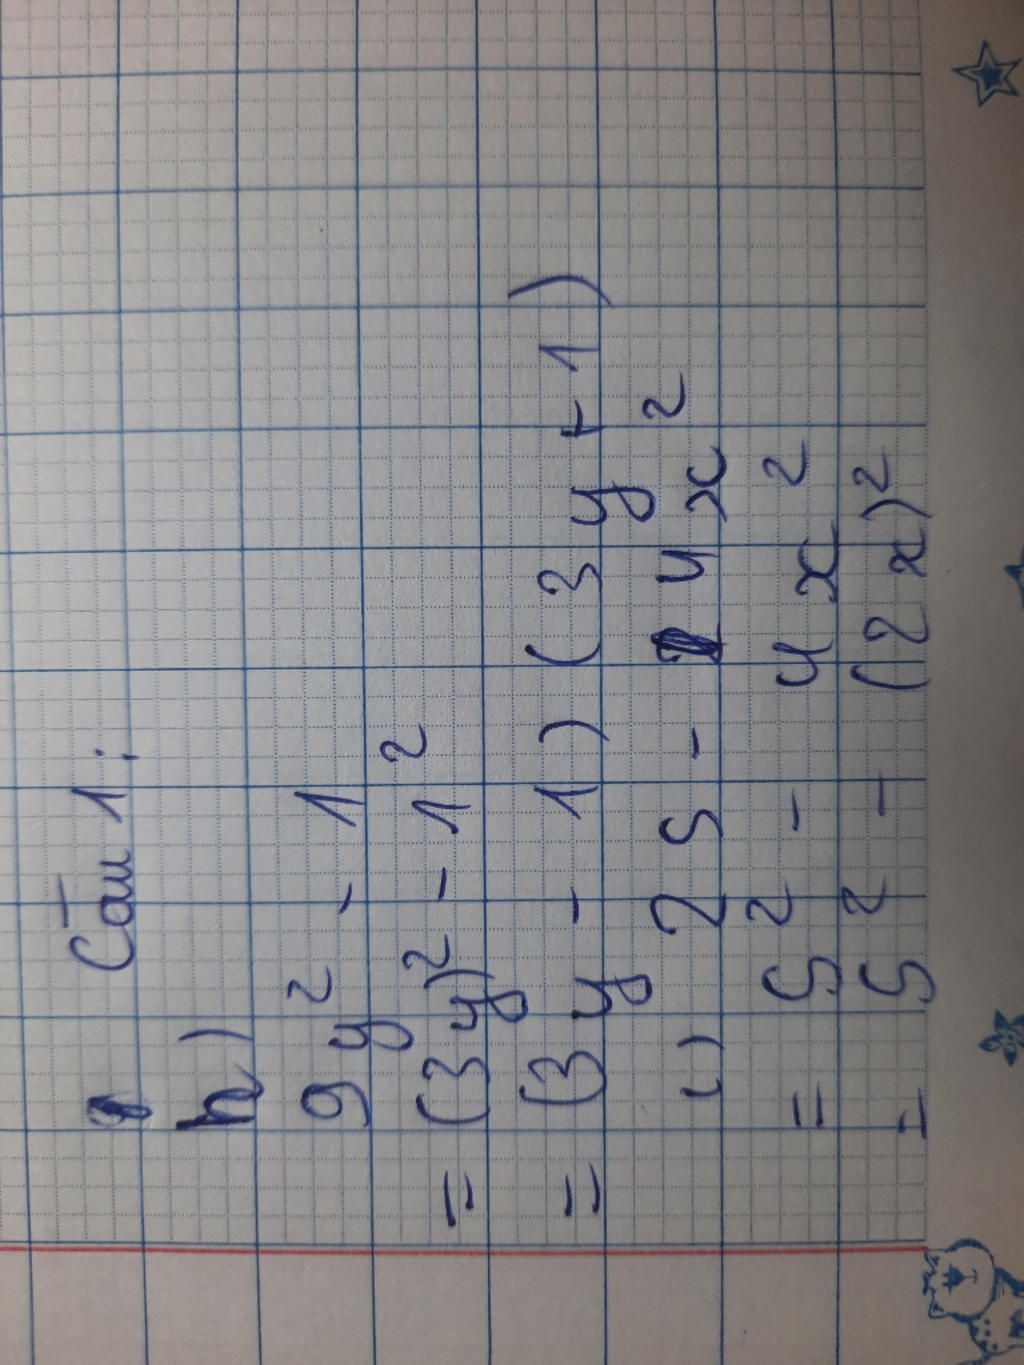 Câu 1:
h)
9y² - 1
= (3y)² - 1²
= (3y - 1) (3y + 1)
i) 25 - 4x²
= 5² - 4x²
= 5² - (2x)²